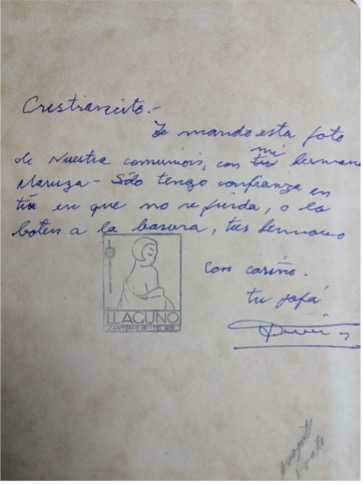 Cristiancito.-
Te mando esta foto
de Nuestra comunión, con mi hermana
Maruza - Sólo tengo confianza en
tí en que no se pierda, o la
boten a la basura, tus hermano
Con cariño.
tu papá
LLAGUNO